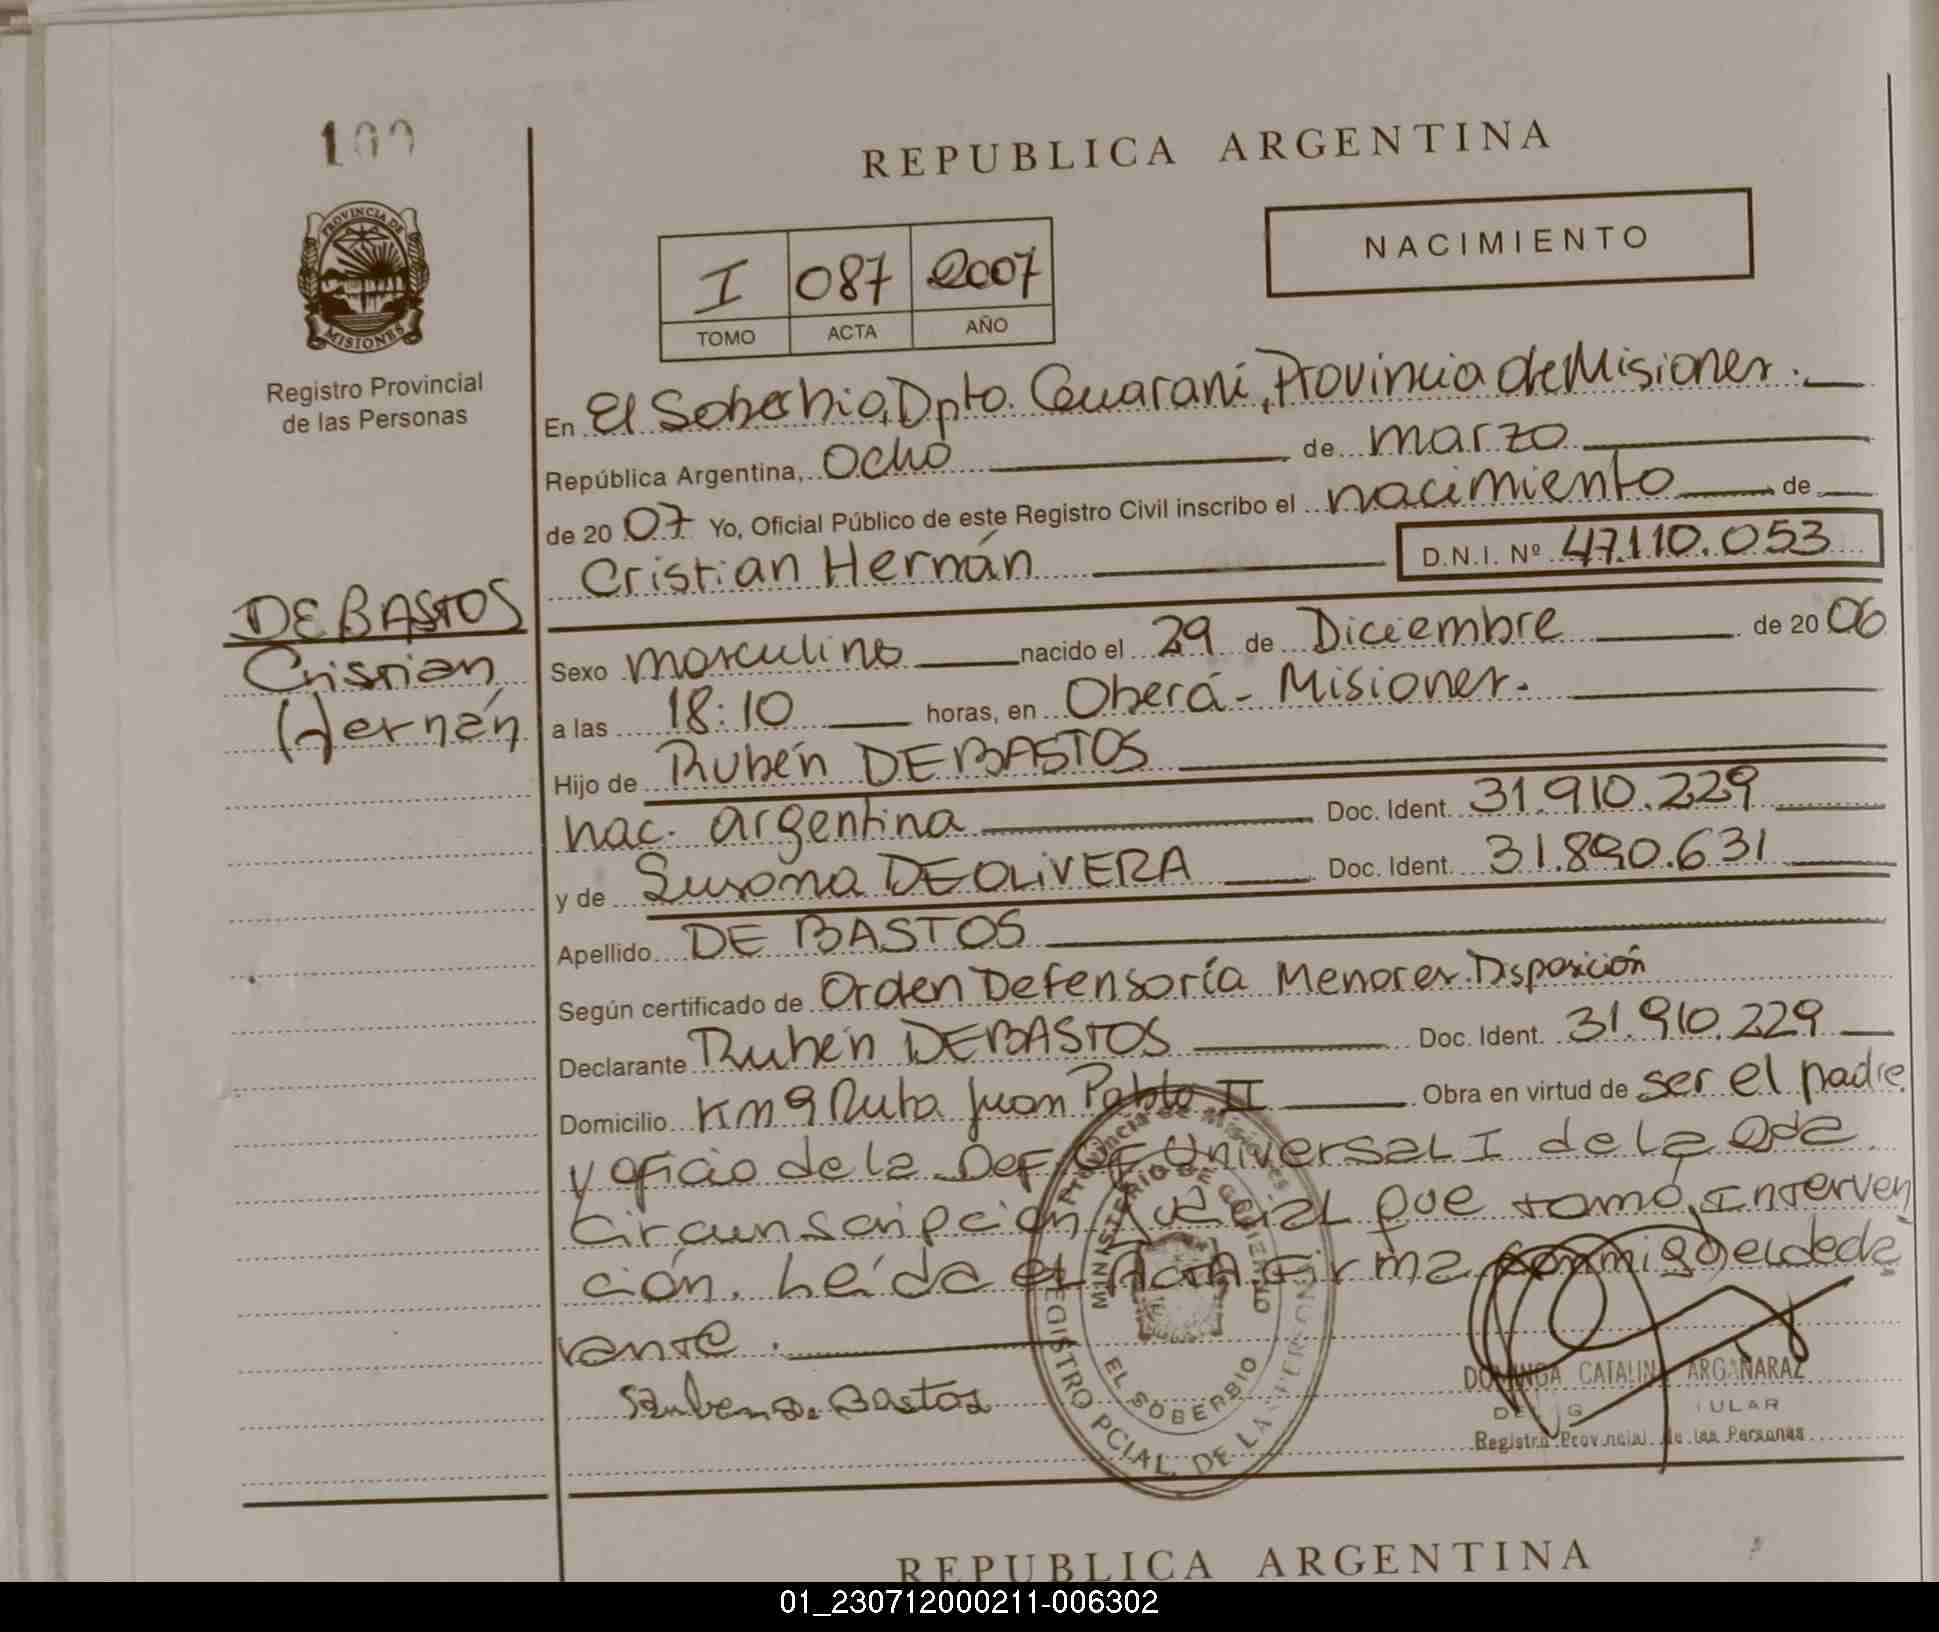 100
REPUBLICA ARGENTINA
PROVINCIA DE
MISIONES
Registro Provincial
de las Personas
NACIMIENTO
I 087 2007
TOMO ACTA AÑO
En El Soberbio, Dpto. Guaraní, Provincia de Misiones.
República Argentina, Ocho de marzo
de 2007 Yo, Oficial Público de este Registro Civil inscribo el nacimiento de
Cristian Hernán D.N.I. Nº 47.110.053
DE BASTOS
Cristian
Hernán
Sexo masculino nacido el 29 de Diciembre de 2006
a las 18:10 horas, en Oberá - Misiones.
Hijo de Rubén DE BASTOS
nac. argentina Doc. Ident. 31.910.229
y de Susana DE OLIVERA Doc. Ident. 31.890.631
Apellido DE BASTOS
Según certificado de Orden Defensoría Menores. Disposición
Declarante Rubén DE BASTOS Doc. Ident. 31.910.229
Domicilio Km 9 Ruta Juan Pablo II Obra en virtud de ser el padre
y oficio de la Def. Of. Universal I de la 2da
Circunscripción Judicial que tomó interven
ción. Leída el Acta firma conmigo el decla
rante.
Ruben De Bastos
Provincia de Misiones
MINISTERIO DE GOBIERNO
EL SOBERBIO
REGISTRO PCIAL. DE LAS PERSONAS
DOMINGA CATALINA ARGAÑARAZ
Registro Provincial de las Personas
REPUBLICA ARGENTINA
01_230712000211-006302